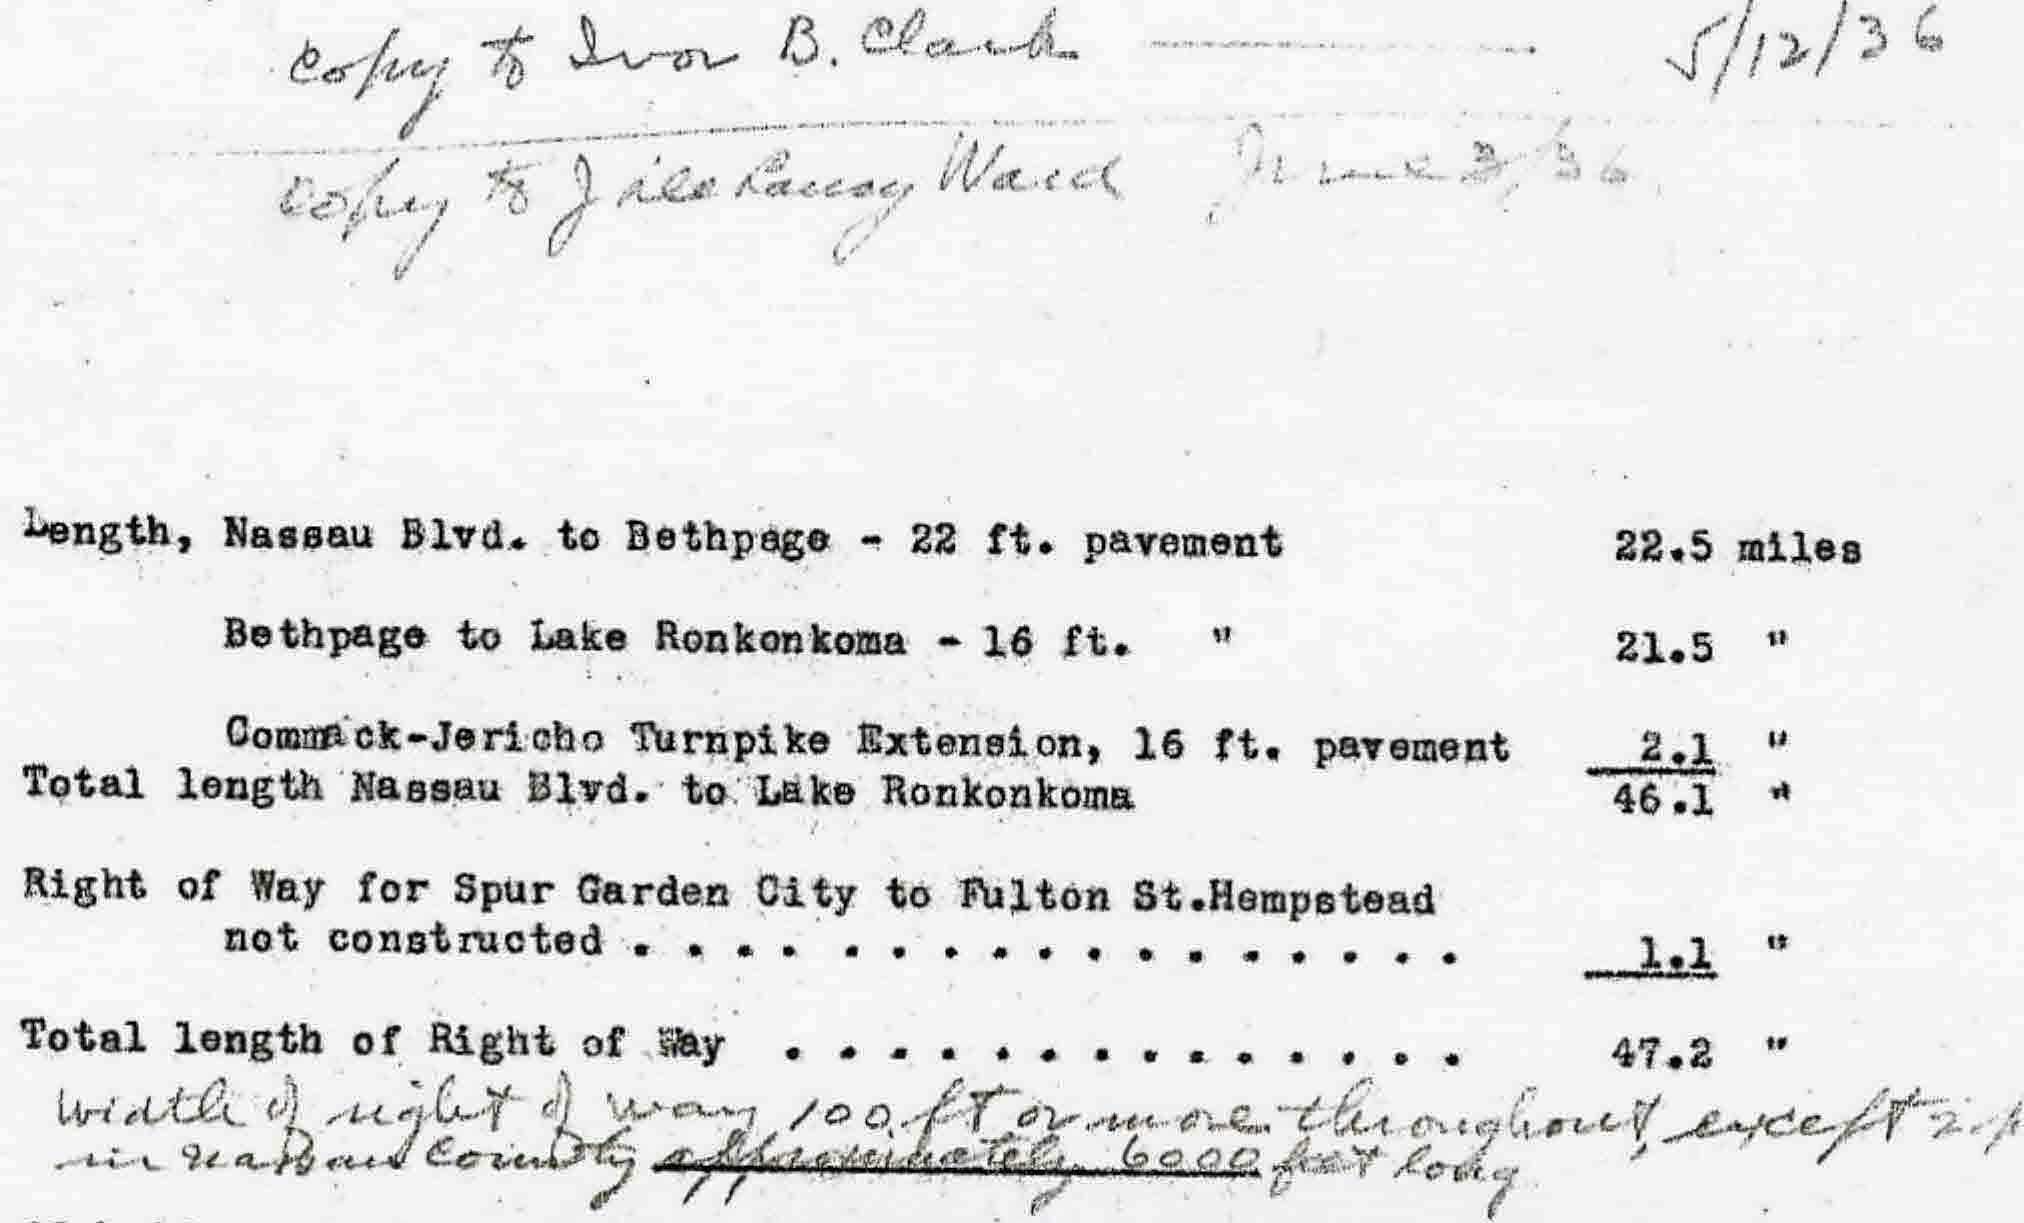 Copy to Ivor B. Clark 5/12/36
Copy to J. Ward June 3/36
Length, Nassau Blvd. to Bethpage - 22 ft. pavement 22.5 miles
Bethpage to Lake Ronkonkoma - 16 ft. " 21.5 "
Commack-Jericho Turnpike Extension, 16 ft. pavement 2.1 "
Total length Nassau Blvd. to Lake Ronkonkoma 46.1 "
Right of Way for Spur Garden City to Fulton St.Hempstead
not constructed . . . . . . . . . . . . . . . . . 1.1 "
Total length of Right of Way . . . . . . . . . . . . . . 47.2 "
Width of right of way 100 ft or more throughout, except
in Nassau County approximately 6000 feet long